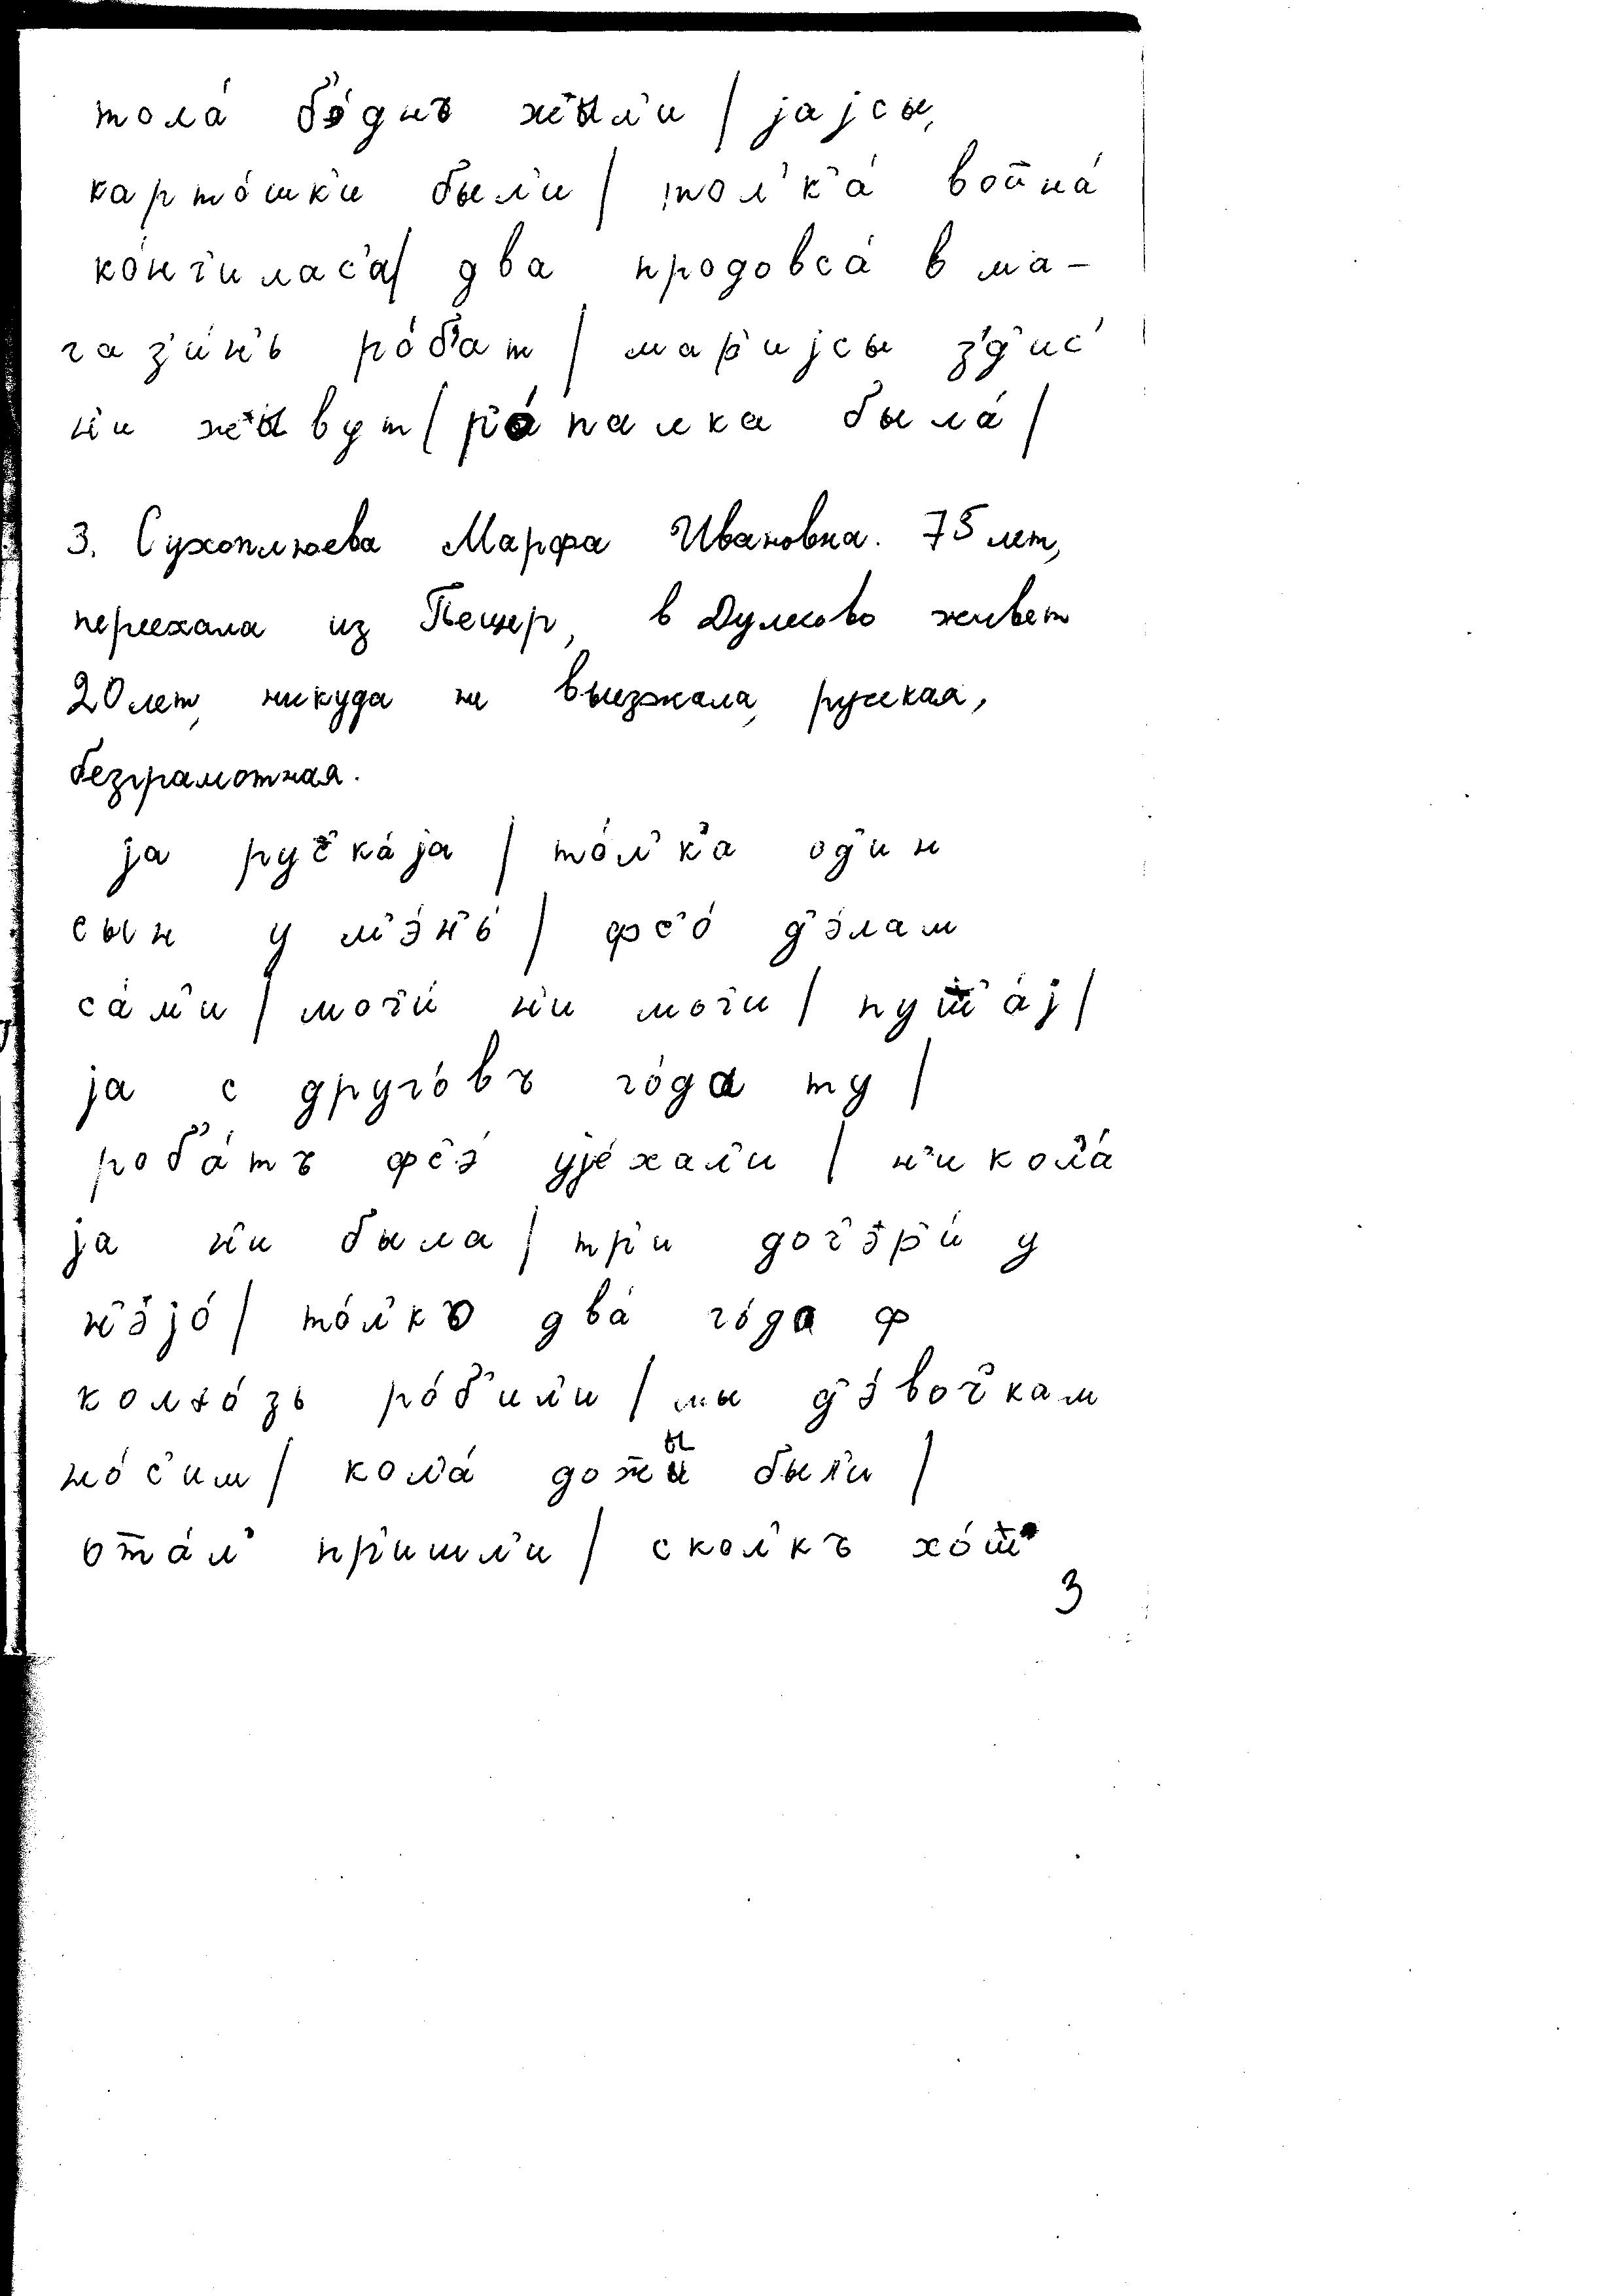 тола́ б’э́днъ жы́л’и | jajсы,
карто́шк’и был’и | тол’к’а́ война́
ко́нч’илас’а| два продовса́ в ма-
газ’и́н’ь ро́б’ат | мар’иjсы з’д’ис’
н’и жывут | р’о́палка была́ |
3. Сухоплюева Марфа Ивановна. 75 лет,
переехала из Пещер, в Дулесово живет
20 лет, никуда не выезжала, русская,
безграмотная.
ja руc̄ка́ja | то́л’к’а од’ин
сын у м’э́н’ь́ | фс’о́ д’э́лам
са́м’и | моги́ н’и моги | пуш̄’а́j |
ja с друго́въ го́да ту |
роб’а́тъ фс’э́ уjе́хал’и | н’икол’а́
ja н’и была | тр’и доч’э́р’и́ у
н’эjо́ | то́л’ко два́ го́да ф
колхо́зь ро́б’ил’и | мы д’э́воч’кам
но́с’им | кол’а́ дож̄ы был’и |
от̄а́л’ пр’ишл’и | скол’къ хо́ш̄’
3